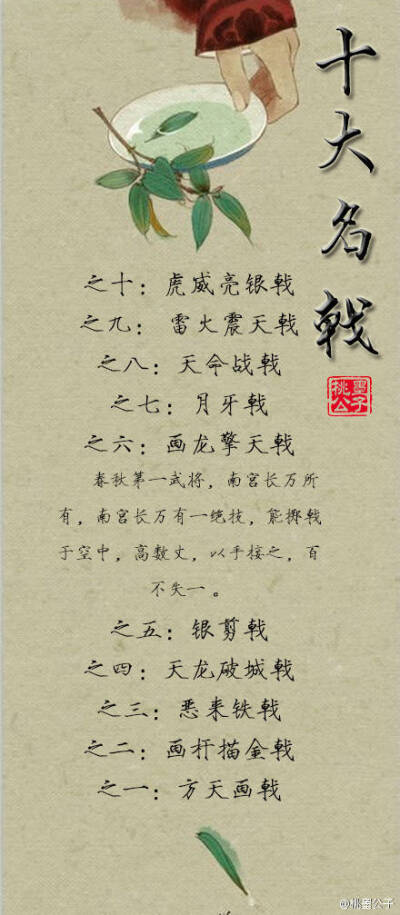 十大名戟
桃墨公子
之十：虎威亮银戟
之九：雷火震天戟
之八：天命战戟
之七：月牙戟
之六：画龙擎天戟
春秋第一武将，南宫长万所
有，南宫长万有一绝技，能掷戟
于空中，高数丈，以手接之，百
不失一。
之五：银剪戟
之四：天龙破城戟
之三：恶来铁戟
之二：画杆描金戟
之一：方天画戟
@桃墨公子